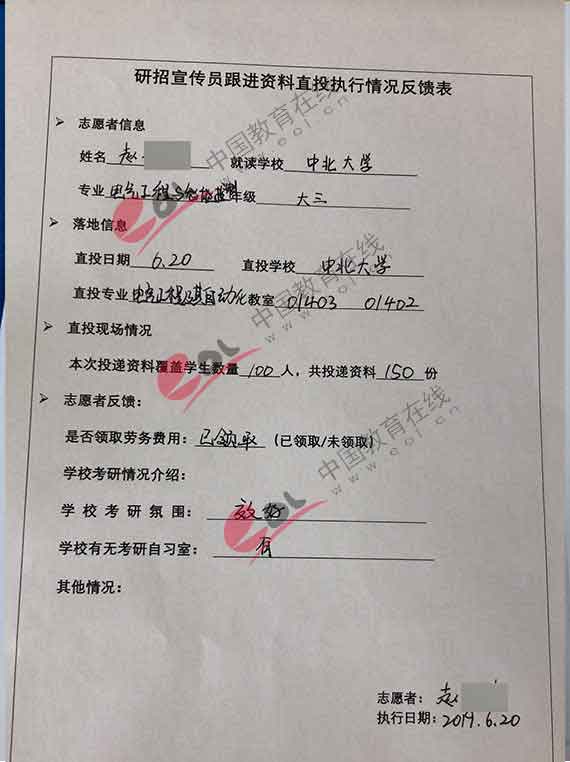 研招宣传员跟进资料直投执行情况反馈表
➢ 志愿者信息
姓名 赵 就读学校 中北大学
专业 电气工程与 年级 大三
➢ 落地信息
直投日期 6.20 直投学校 中北大学
直投专业 电气工程及其自动化 教室 01403 01402
➢ 直投现场情况
本次投递资料覆盖学生数量 100 人，共投递资料 150 份
➢ 志愿者反馈：
是否领取劳务费用：已领取（已领取/未领取）
学校考研情况介绍：
学校考研氛围： 较好
学校有无考研自习室： 有
其他情况：
志愿者： 赵
执行日期：2019.6.20
eol 中国教育在线
www.eol.cn
eol 中国教育在线
www.eol.cn
eol 中国教育在线
www.eol.cn